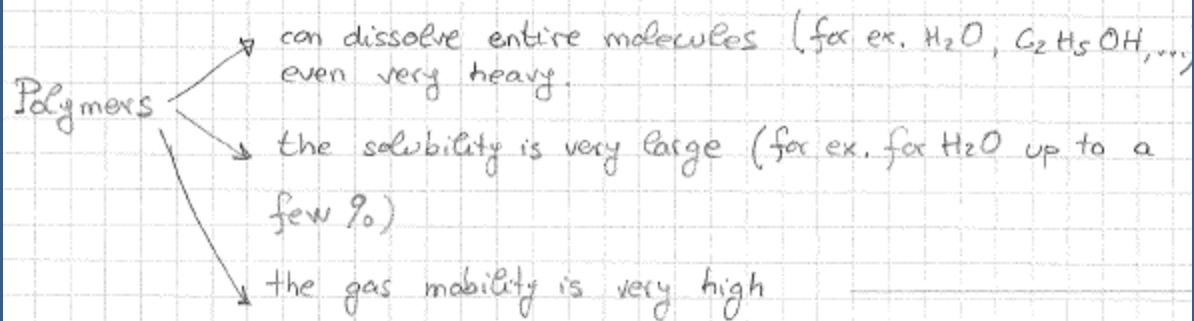 can dissolve entire molecules (for ex. H₂O, C₂H₅OH,...,
even very heavy.
Polymers
the solubility is very large (for ex. for H₂O up to a
few %)
the gas mobility is very high